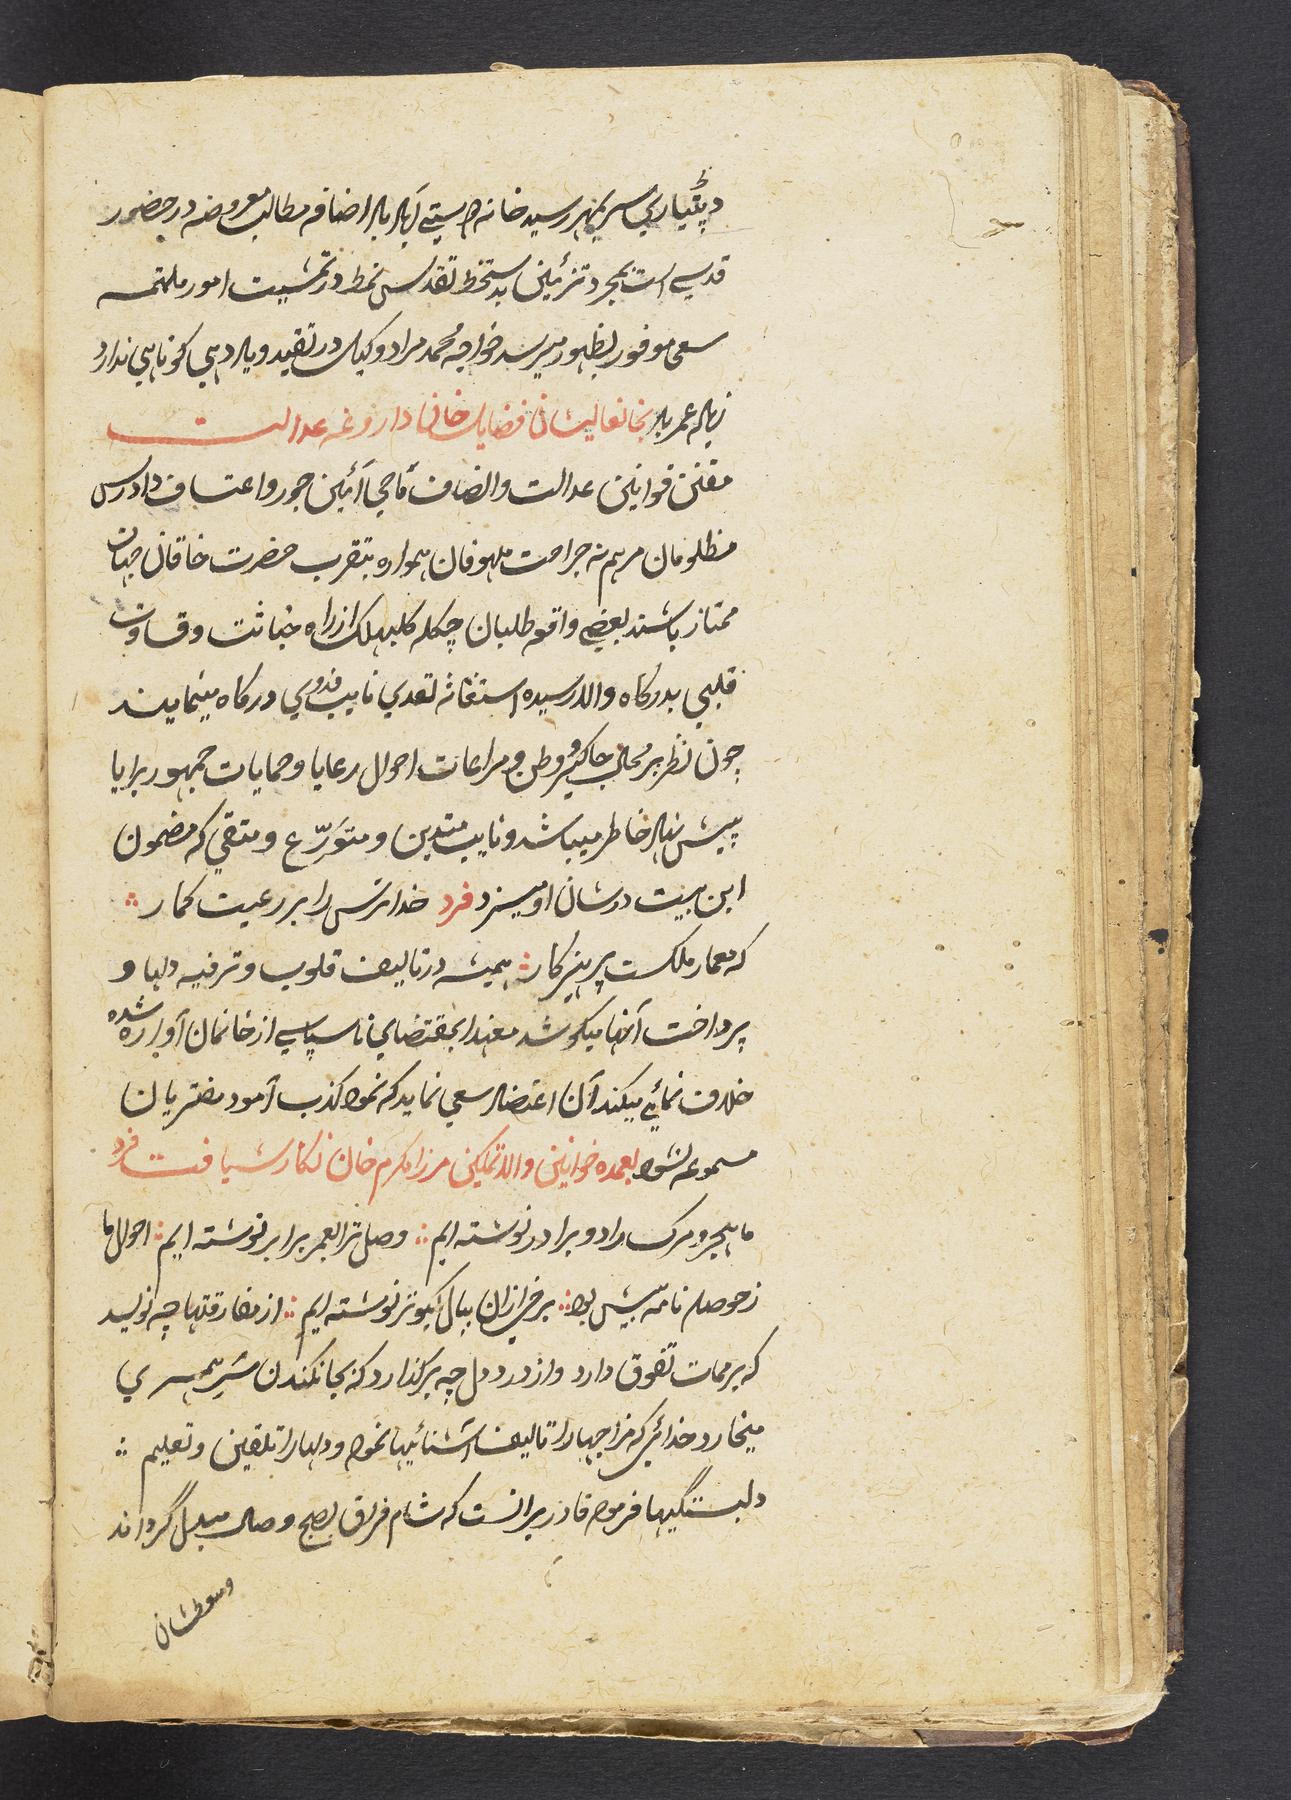 رسید خانه اضافه مطالب معروضه در حضور
قدسی است بمجرد تزئین بدستخط تقدس نمط در تمشیت امور ملتمسه
سعی موفور بظهور میرسد خواجه محمد مراد وکیل در تقید و یاددهی کوتاهی ندارد
زیاده عمر باد بخانعالیشان فضایل خان داروغه عدالت
مقنن قوانین عدالت وانصاف ماحی آئین جور واعتساف دادرس
مظلومان مرهم نه جراحت ملهوفان همواره بتقرب حضرت خاقان جهان
ممتاز باشند بعضی واقعه طلبان چکله از راه خباثت وقساوت
قلبی بدرگاه والا رسیده استغاثه تعدی نایب فدوی درگاه مینمایند
چون نظر بر محال جاگیر و وطن و مراعات احوال رعایا وحمایات جمهور برایا
پیش نهاد خاطر میباشد و نایب متدین و متورّع و متقی که مضمون
این بیت در شان او میسزد فرد خدا ترس را بر رعیت گمار
که معمار ملکست پرهیزگار همیشه در تالیف قلوب و ترفیه دلها و
پرداخت آنها میکوشد معهذا بمقتضای ناسپاسی از خانمان آواره شده
خلاف نمائی میکنند آن اعتضاد سعی نماید که نمود کذب آمود مفتریان
مسموع نشود بعمده خوانین والا تمکین مرزا مکرم خان نگارش یافت فرد
ما هجر و مرک را دو برادر نوشته ایم وصل ترا بعمر برابر نوشته ایم احوال ما
ز حوصله نامه بیش بود برخی ازان ببال کبوتر نوشته ایم از مفارقتها چه نویسد
که بر ممات تفوق دارد و از درد دل چه برگذارد که بجانکندن سر همسری
میخارد خدائی که مزاجها را تالیف آشنائیها نموده و دلها را تلقین وتعلیم
دلبستگیها فرموده قادر برانست که شام فراق بصبح وصال مبدل گرداند